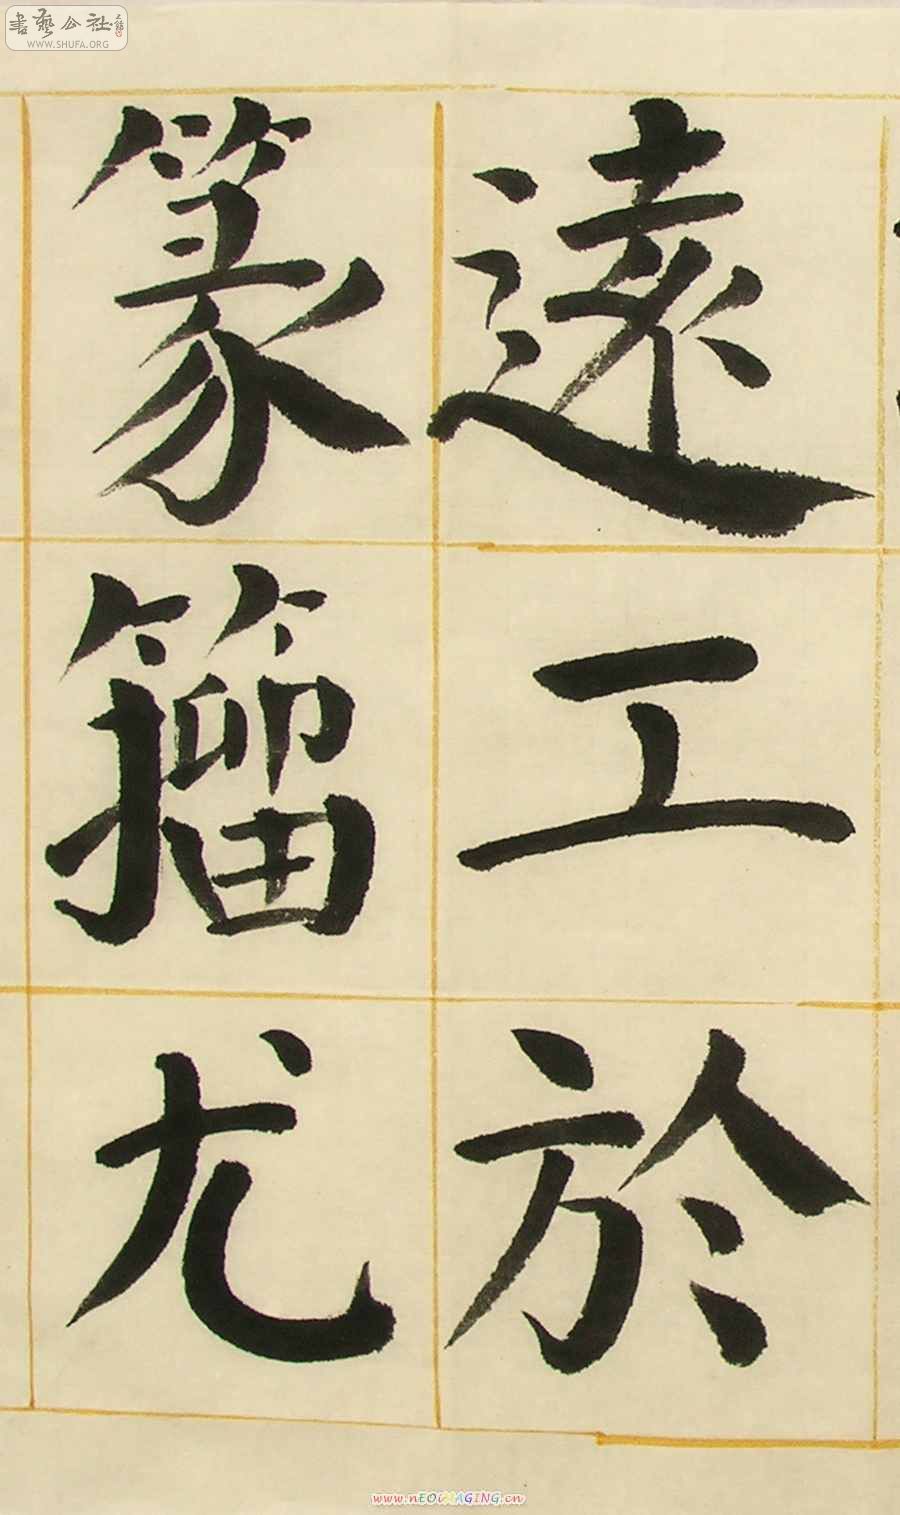 書藝公社
WWW.SHUFA.ORG
遠工於
篆籀尤
www.nEOiMAGING.cn